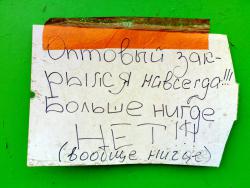 Оптовый зак-
рылся навсегда!!!
Больше нигде
НЕТ!!!
(вообще нигде)